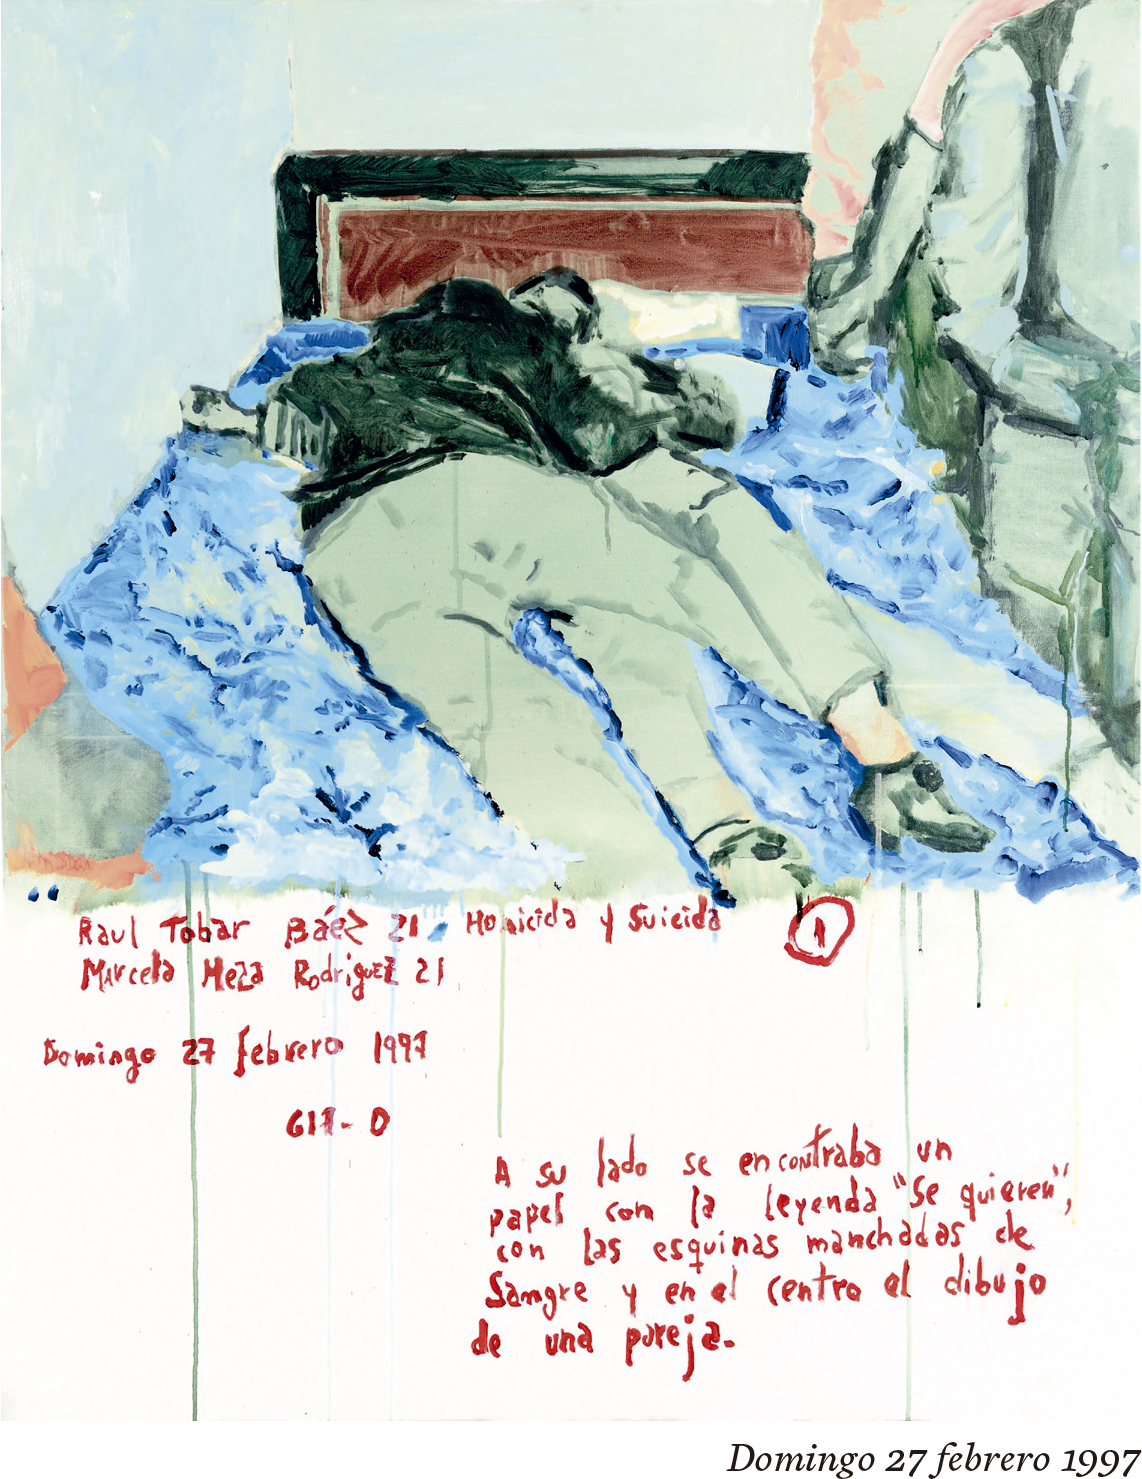 Raul Tobar Báez 21, Homicida y Suicida 1
Marcela Meza Rodriguez 21
Domingo 27 febrero 1997
617- D
A su lado se encontraba un
papel con la leyenda "Se quieren",
con las esquinas manchadas de
Sangre y en el centro el dibujo
de una pareja.
Domingo 27 febrero 1997